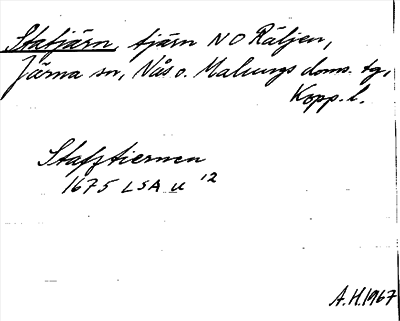 Stafjärn, tjärn NO Räljen,
Järna sn, Nås o. Malungs doms. tg,
Kopp. l.
Stafztiernen
1675 LSA U 12
A.H. 1967